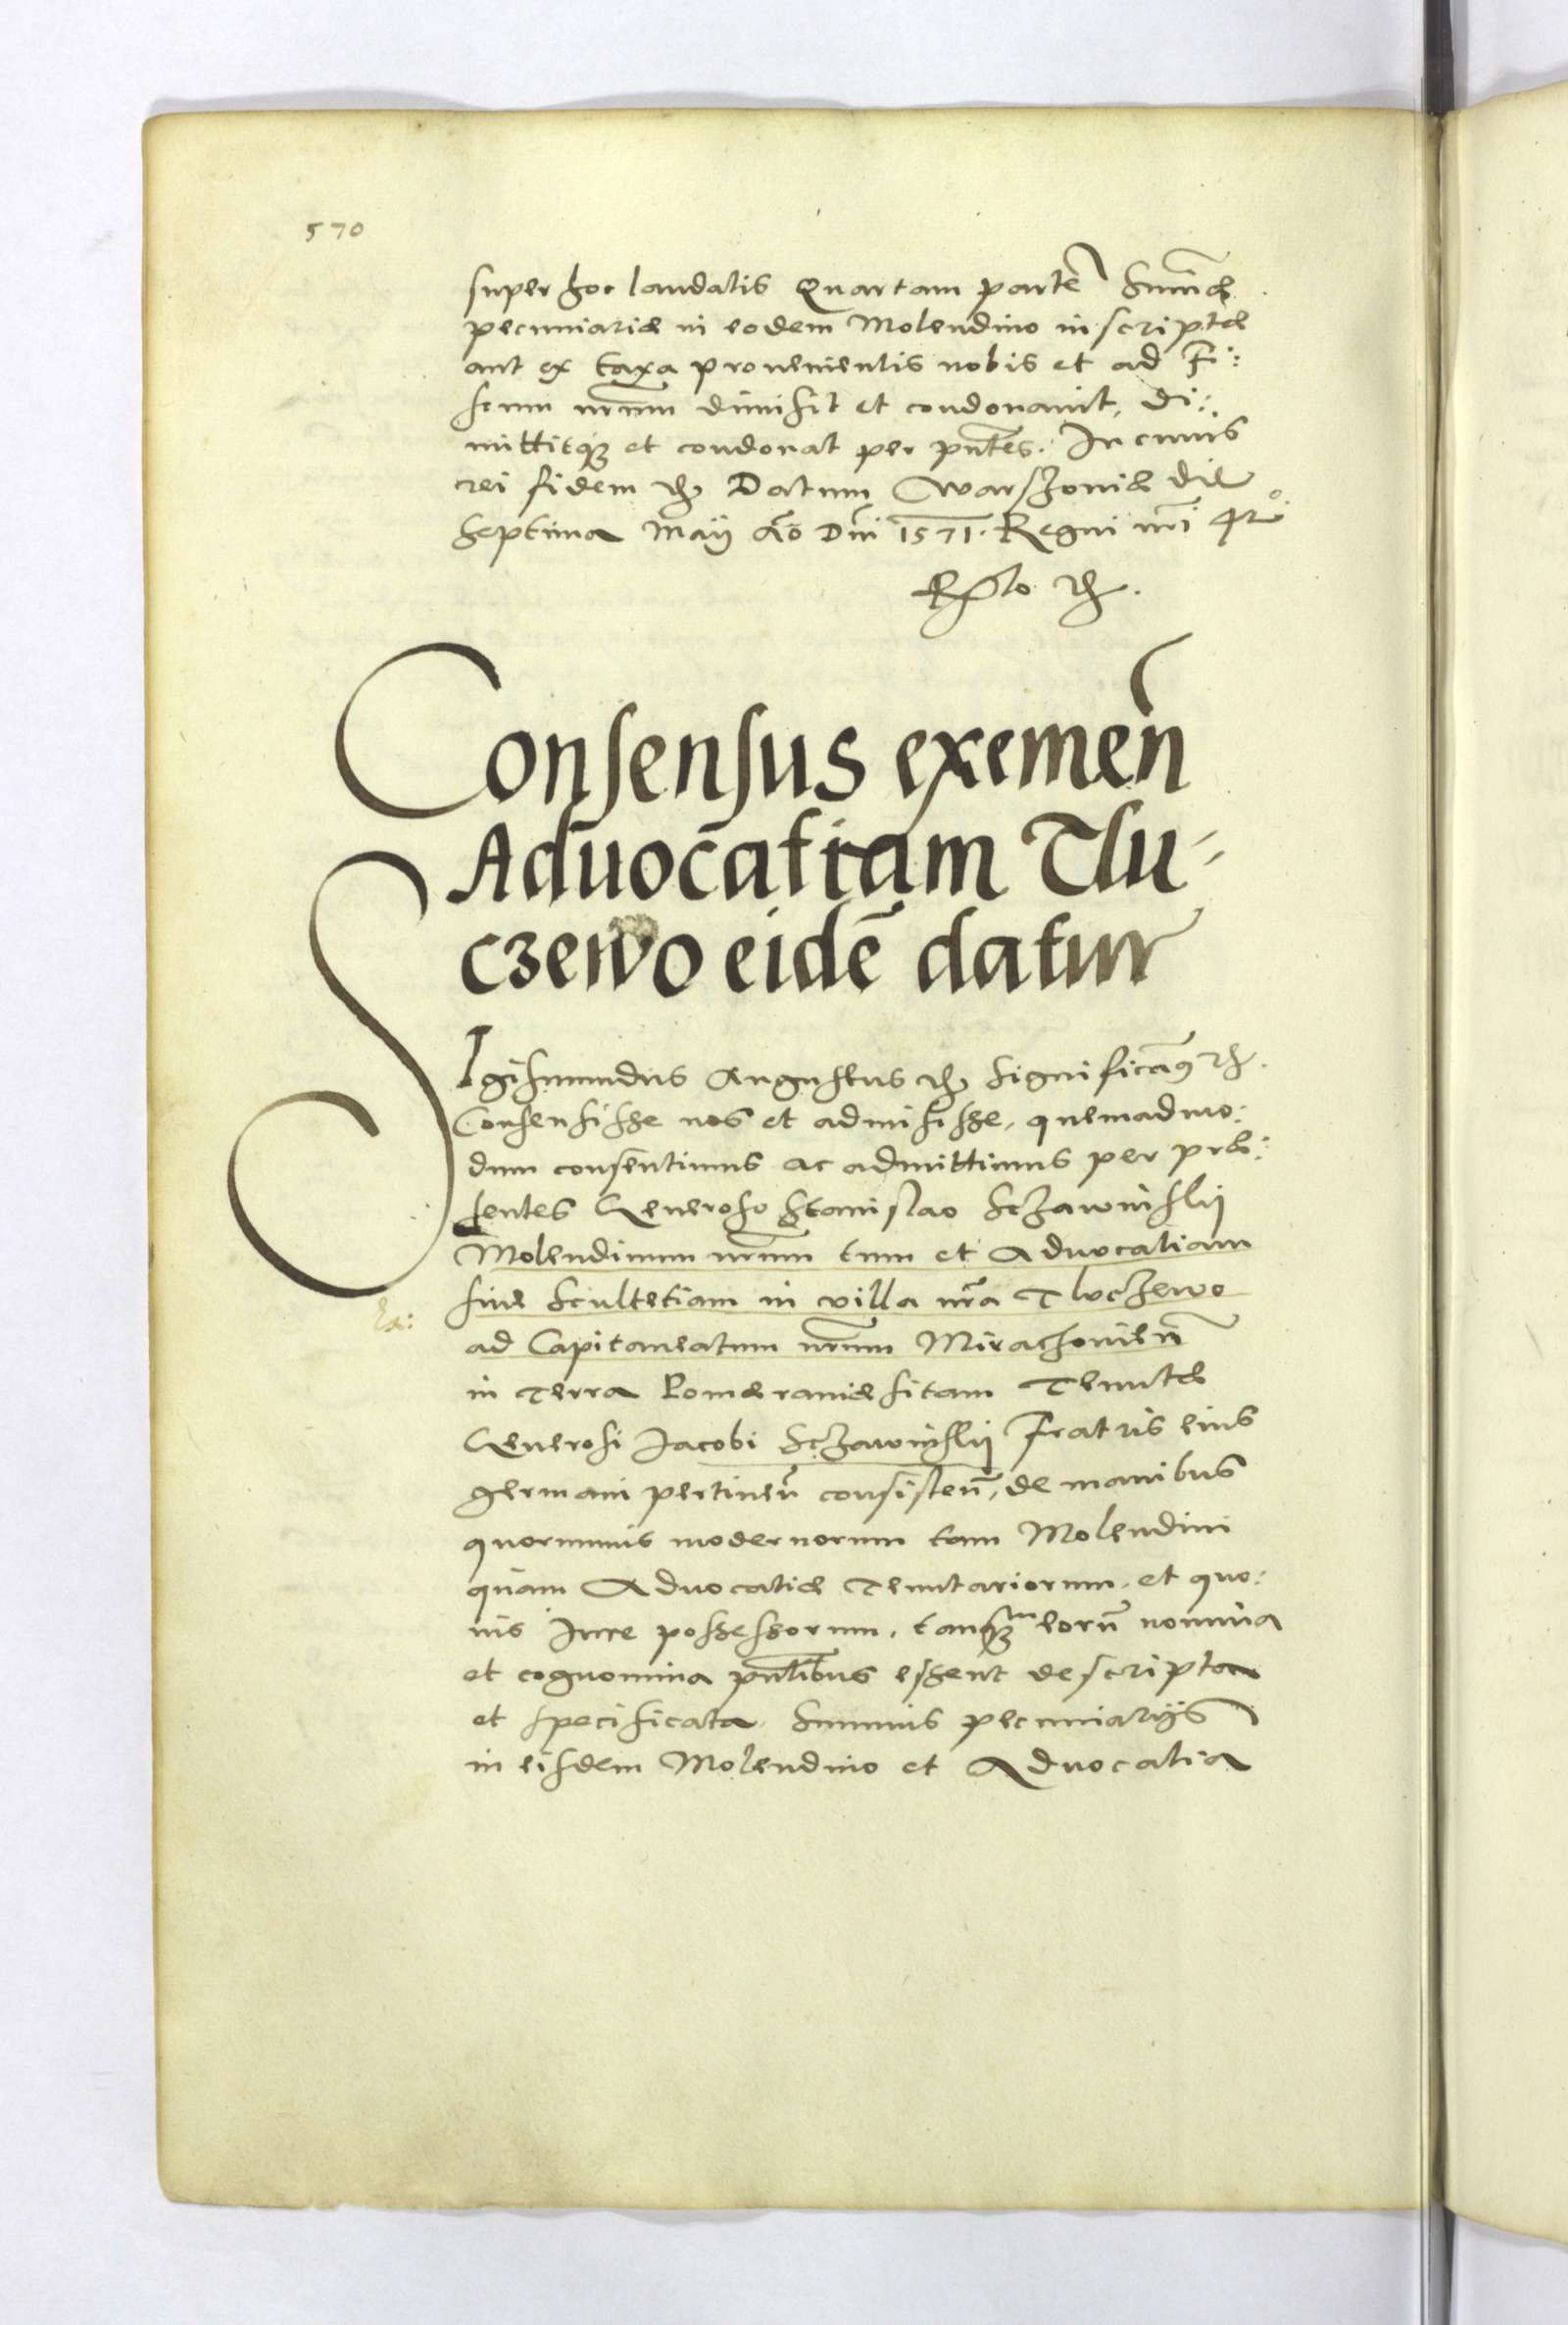 570
super hoc laudatis Quartam parte͂ Sum͂æ
pecuniariæ in eodem Molendino inscriptæ
aut ex taxa prouenientis nobis et ad Fi:
scum nr͂um dimisit et condonauit, di:
mittitq́ue et condonat per pn͂tes. In cuius
rei fidem etc Datum Warszoviæ die
Septima Maij An͂o Dn͂i 1571. Regni nr͂i 42º
R͂elatio etc.
Consensus eximen͂
Aduocatiam Tlu-
czewo eide͂ datur
SIgismundus Augustus etc Significam9 etc.
Consensisse nos et admisisse, quemadmo:
dum consentimus ac admittimus per præ:
sentes Generoso Stanislao Sczawinskij
Molendinum nr͂um tum et Aduocatiam
siue Scultetiam in villa nr͂a Tluczewo
ad Capitaneatum nr͂um Mirachovien͂
in Terra Pomæraniæ sitam Tenutæ
Generosi Jacobi Sczawinskij Fratris eius
germani pertinen͂ consisten͂, de manibus
quorumuis modernorum tam Molendini
quam Aduocatiæ Tenutariorum, et quo:
uis Jure possessorum, tanq͂ eoru͂ nomina
et cognomina pn͂tibus essent descripta
et specificata, Summis pecuniarijs
in eisdem Molendino et Aduocatia